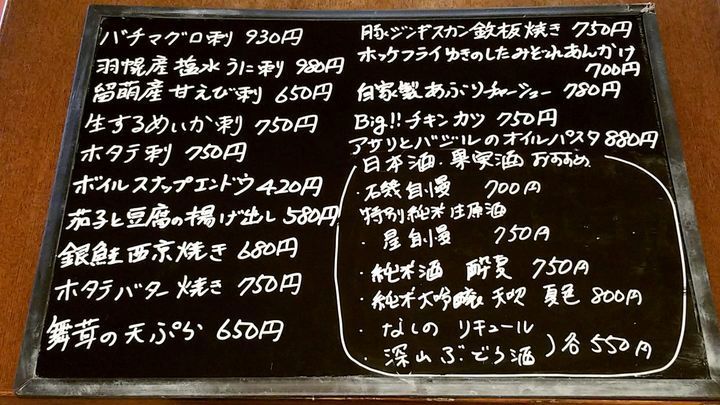 バチマグロ刺 930円
羽幌産塩水うに刺 980円
留萌産甘えび刺 650円
生するめいか刺 750円
ホタテ刺 750円
ボイルスナップエンドウ 420円
茄子と豆腐の揚げ出し 580円
銀鮭西京焼き 680円
ホタテバター焼き 750円
舞茸の天ぷら 650円
豚ジンギスカン鉄板焼き 750円
ホッケフライゆきのしたみどれあんかけ
700円
自家製あぶりチャーシュー 780円
Big!! チキンカツ 750円
アサリとバジルのオイルパスタ 880円
日本酒・果実酒 おすすめ
・石袋自慢 700円
特別純米生原酒
・屋自慢 750円
・純米酒 酔夏 750円
・純米大吟醸 夏色 800円
・なしの リキュール
・深山ぶどう酒 ) 各 550円